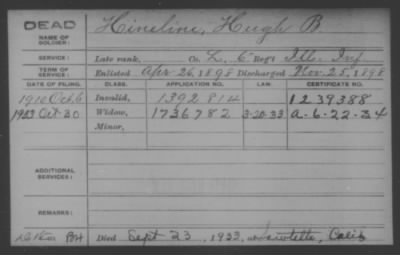 DEAD
NAME OF
SOLDIER:
Hineline, Hugh B.
SERVICE:
Late rank, Co. L, 6 Reg't Ill. Inf
TERM OF
SERVICE:
Enlisted Apr 26, 1898 Discharged Nov. 25, 1898
DATE OF FILING. CLASS. APPLICATION NO. LAW. CERTIFICATE NO.
1910 Oct 6 Invalid, 1392 814 1239388
1933 Oct 30 Widow, 1736782 3-20-33 A-6-22-34
Minor,
ADDITIONAL
SERVICES:
REMARKS:
Died Sept 23, 1933, at Sawtelle, Calif